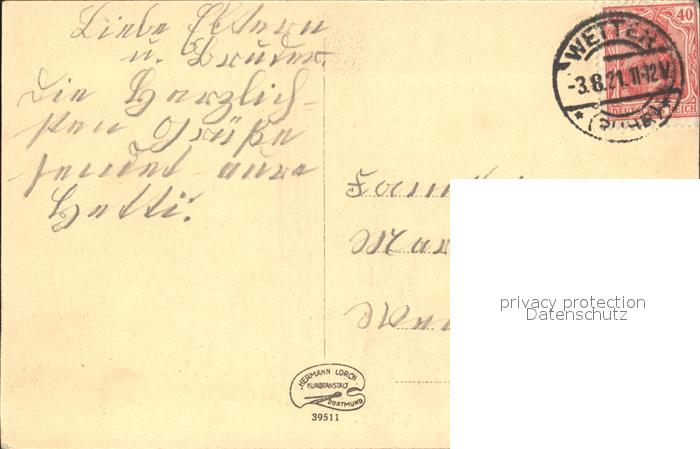 Liebe Eltern
u. Bruder.
Die Herzlich-
sten Grüße
sendet eure
Hetti.
WETTER
-3.8.21. 11-12 V.
(RUHR)
40
DEUTSCHES REICH
Fam
Mar
privacy protection
Datenschutz
HERMANN LORCH
KUNSTANSTALT
DORTMUND
39511